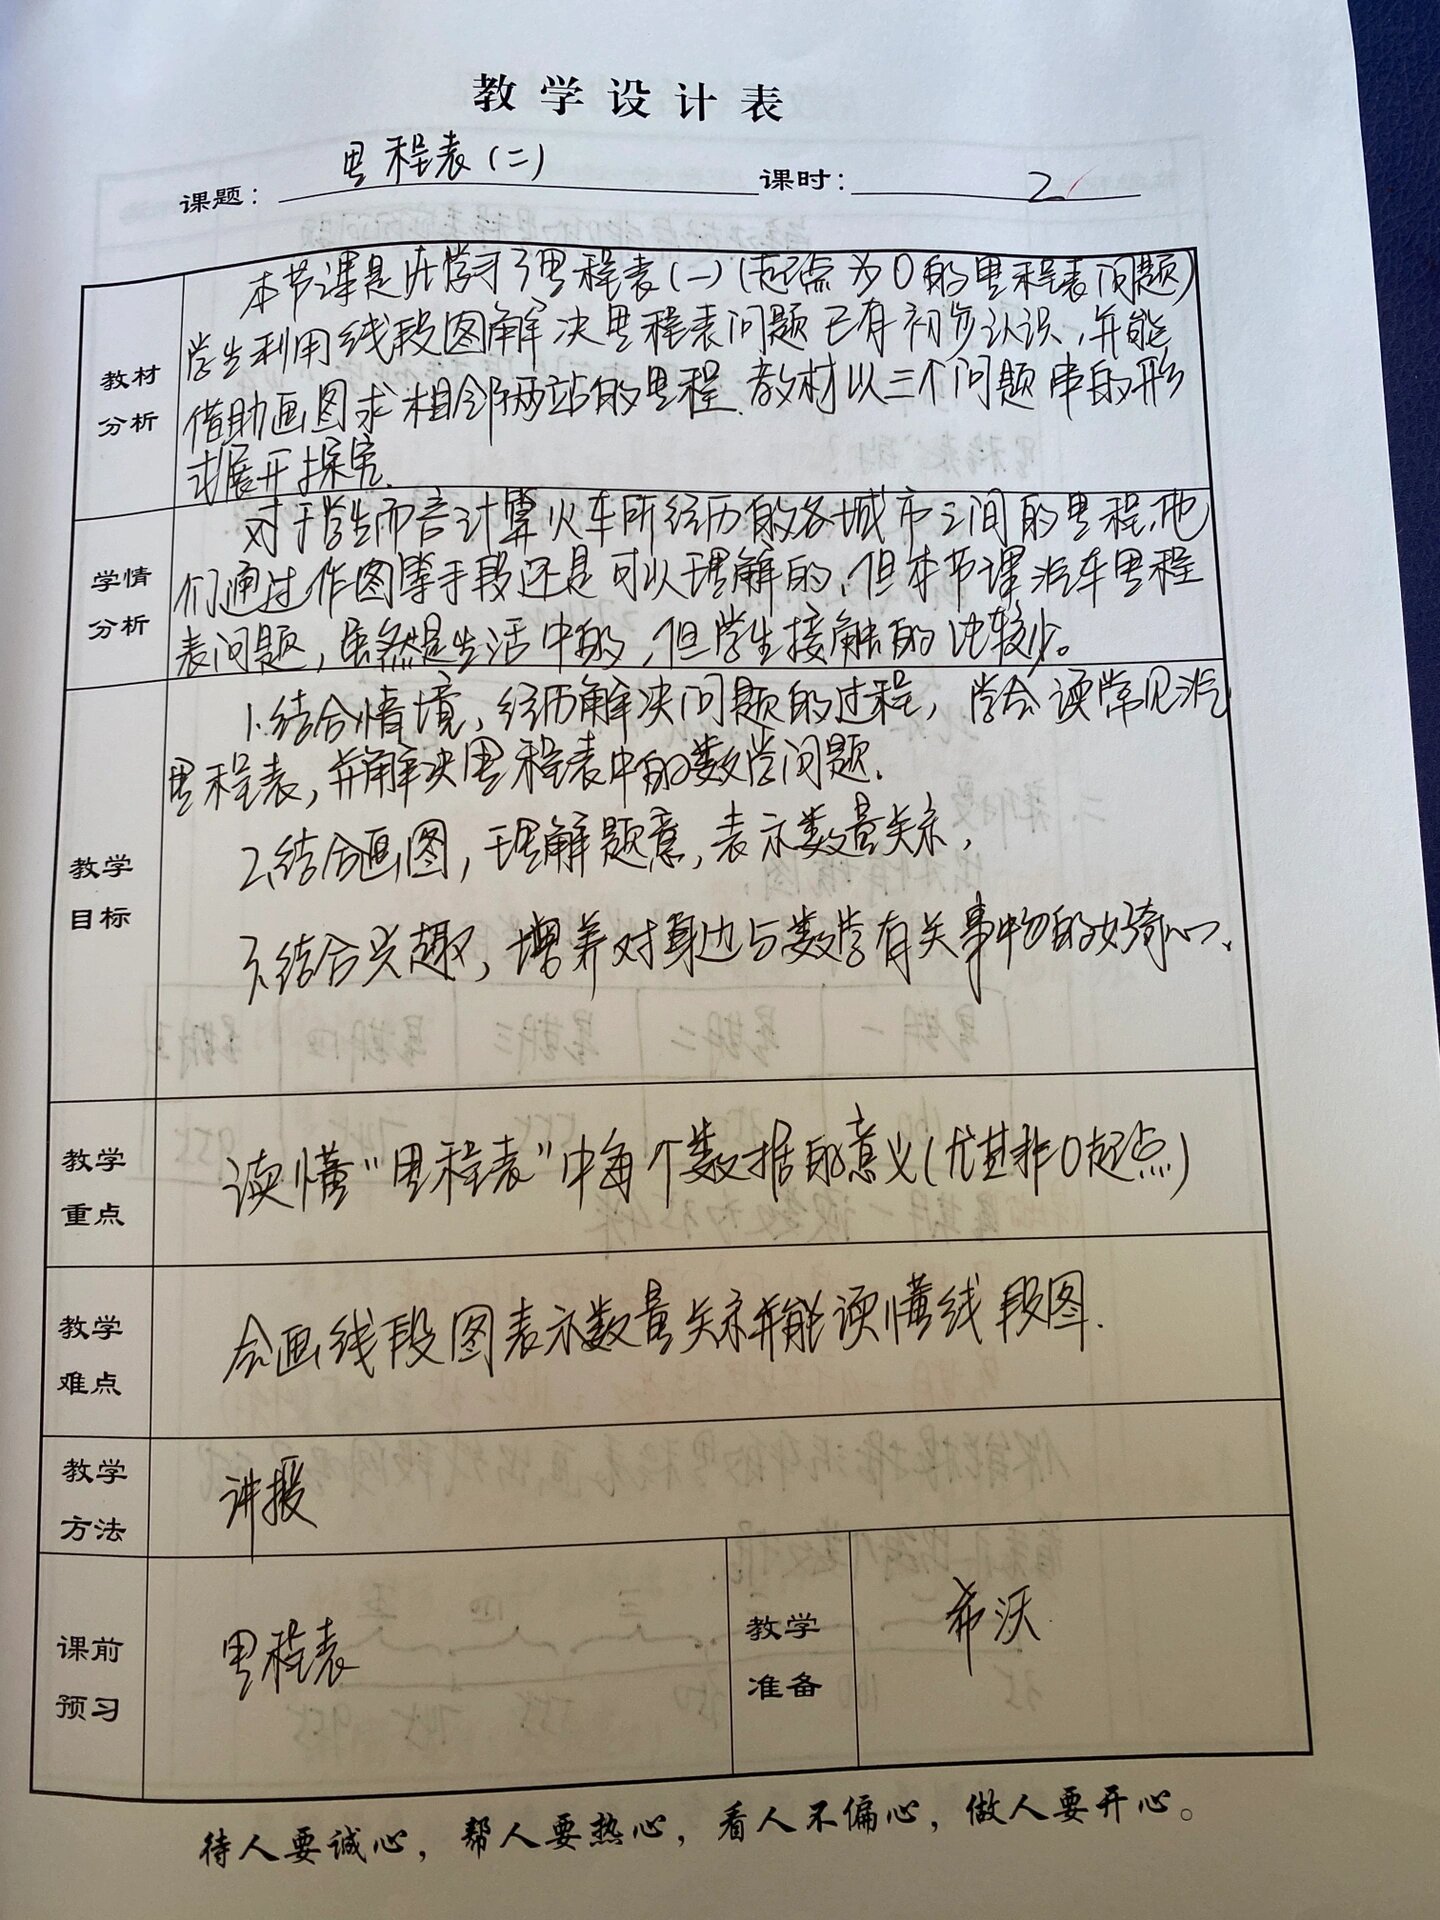 教学设计表
课题： 里程表（二） 课时： 2
教材分析
本节课是在学习了里程表（一）（起点为0的里程表问题）
学生利用线段图解决里程表问题已有初步认识，并能
借助画图求相邻两站的里程．教材以三个问题串的形
式展开探究．
学情分析
对于学生而言计算火车所经历的各城市之间的里程，他
们通过作图等手段还是可以理解的，但本节课汽车里程
表问题，虽然是生活中的，但学生接触的比较少。
教学目标
1．结合情境，经历解决问题的过程，学会读常见汽
里程表，并解决里程表中的数学问题．
2．结合画图，理解题意，表示数量关系，
3．结合兴趣，增养对身边与数学有关事物的好奇心、
教学重点
读懂“里程表”中每个数据的意义（尤其非0起点）
教学难点
会画线段图表示数量关系并能读懂线段图．
教学方法
讲授
课前预习
里程表
教学准备
希沃
待人要诚心，帮人要热心，看人不偏心，做人要开心。